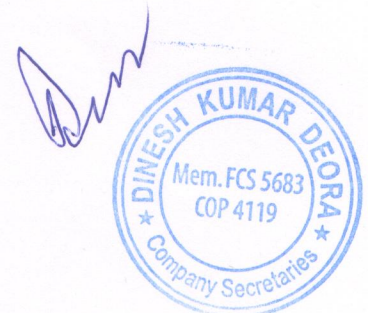 DINESH KUMAR DEORA
Mem. FCS 5683
COP 4119
★ Company Secretaries ★